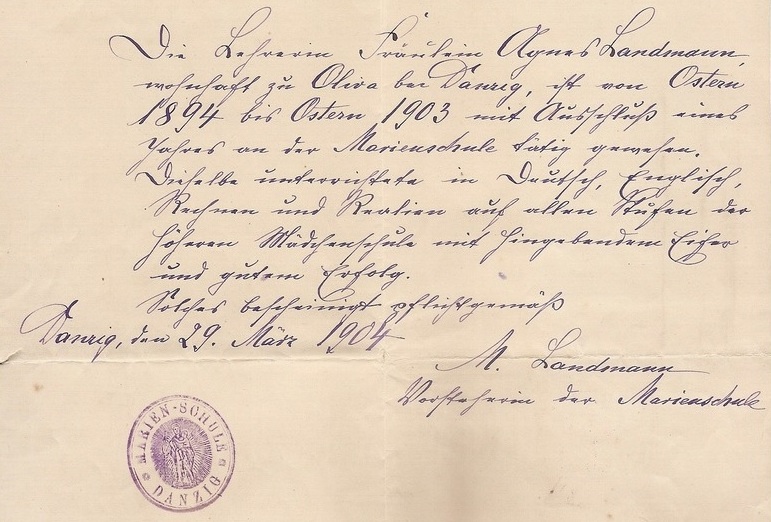 Die Lehrerin Fräulein Agnes Landmann,
wohnhaft zu Oliva bei Danzig, ist von Ostern
1894 bis Ostern 1903 mit Ausschluß eines
Jahres an der Marienschule tätig gewesen.
Dieselbe unterrichtete in Deutsch, Englisch,
Rechnen und Realien auf allen Stufen der
höheren Mädchenschule mit hingebendem Eifer
und gutem Erfolg.
Solches bescheinigt pflichtgemäß
Danzig, den 29. März 1904
M. Landmann
Vorsteherin der Marienschule
MARIEN-SCHULE
DANZIG